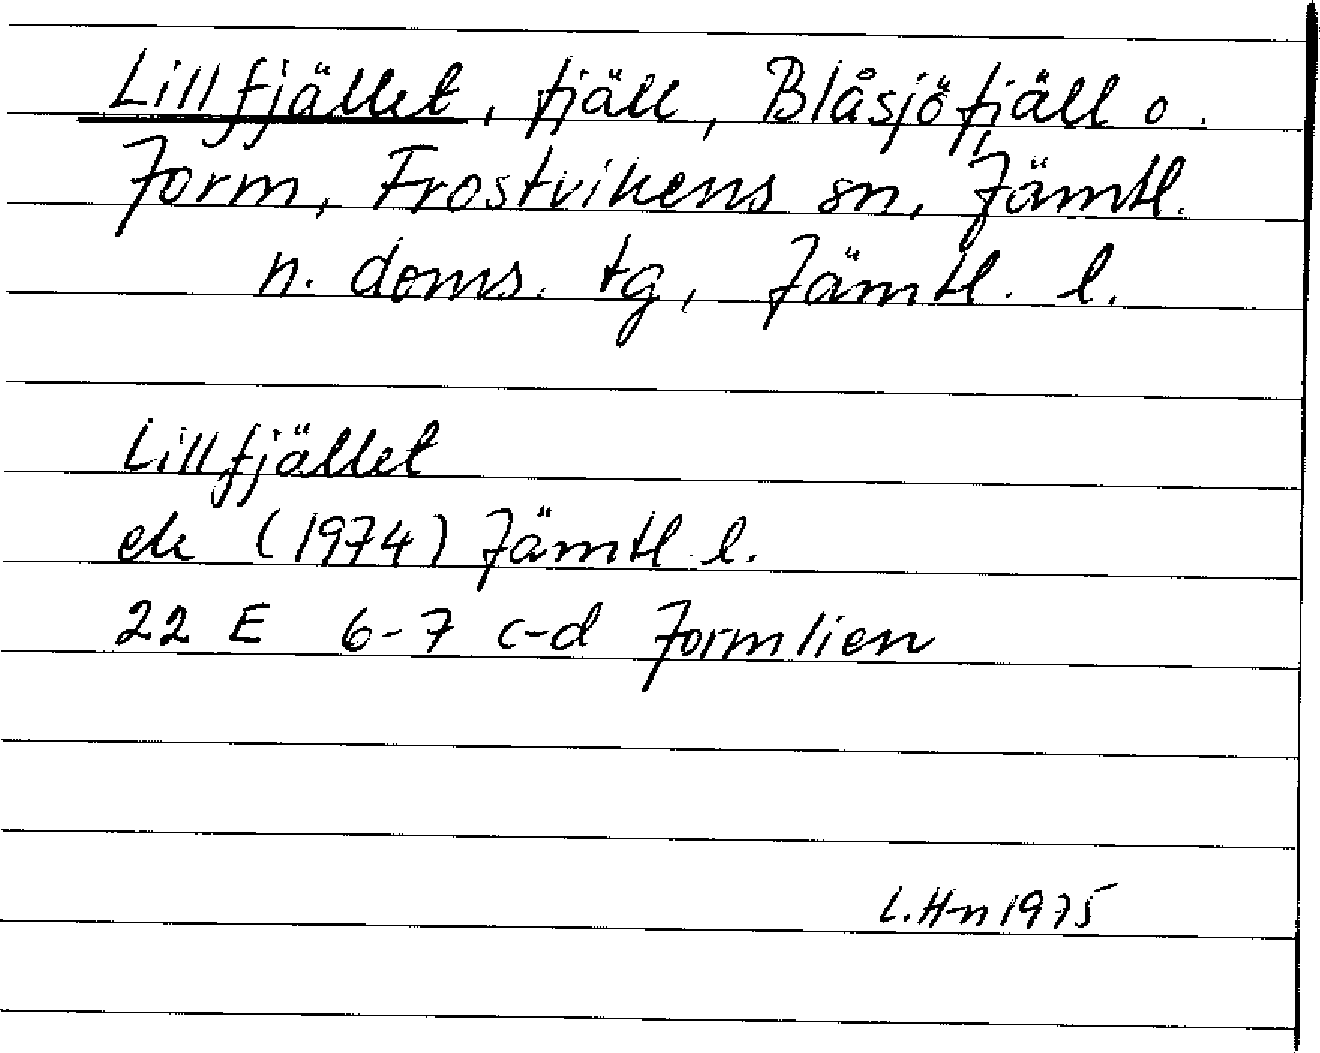 Lillfjället, fjäll, Blåsjöfjäll o.
Jorm, Frostvikens sn, Jämtl.
n. doms. tg, Jämtl. l.
Lillfjället
ek (1974) Jämtl. l.
22 E 6-7 c-d Jormlien
L.H-n 1975